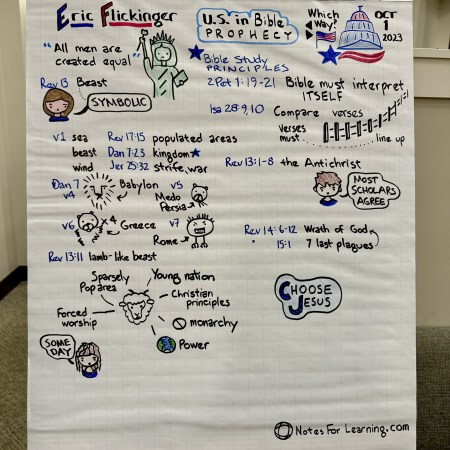 Eric Flickinger
U.S. in Bible
PROPHECY
Which
Way!
OCT
1
2023
"All men are
created equal"
Bible Study
PRINCIPLES
2Pet 1:19-21 Bible must interpret
ITSELF
Isa 28:9,10 Compare verses
Verses
must
line up
Rev 13 Beast
SYMBOLIC
v1 sea Rev 17:15 populated areas
beast Dan 7:23 kingdom
wind Jer 25:32 strife, war
Rev 13:1-8 the Antichrist
MOST
SCHOLARS
AGREE
Dan 7
v4
Babylon
v5
Medo
Persia
v6
x4
Greece
v7
Rome
Rev 14:6-12 Wrath of God
" 15:1 7 last plagues
Rev 13:11 lamb-like beast
Sparsely
Pop area
Young nation
Christian
principles
Forced
worship
monarchy
Power
SOME
DAY
CHOOSE
JESUS
NotesForLearning.com